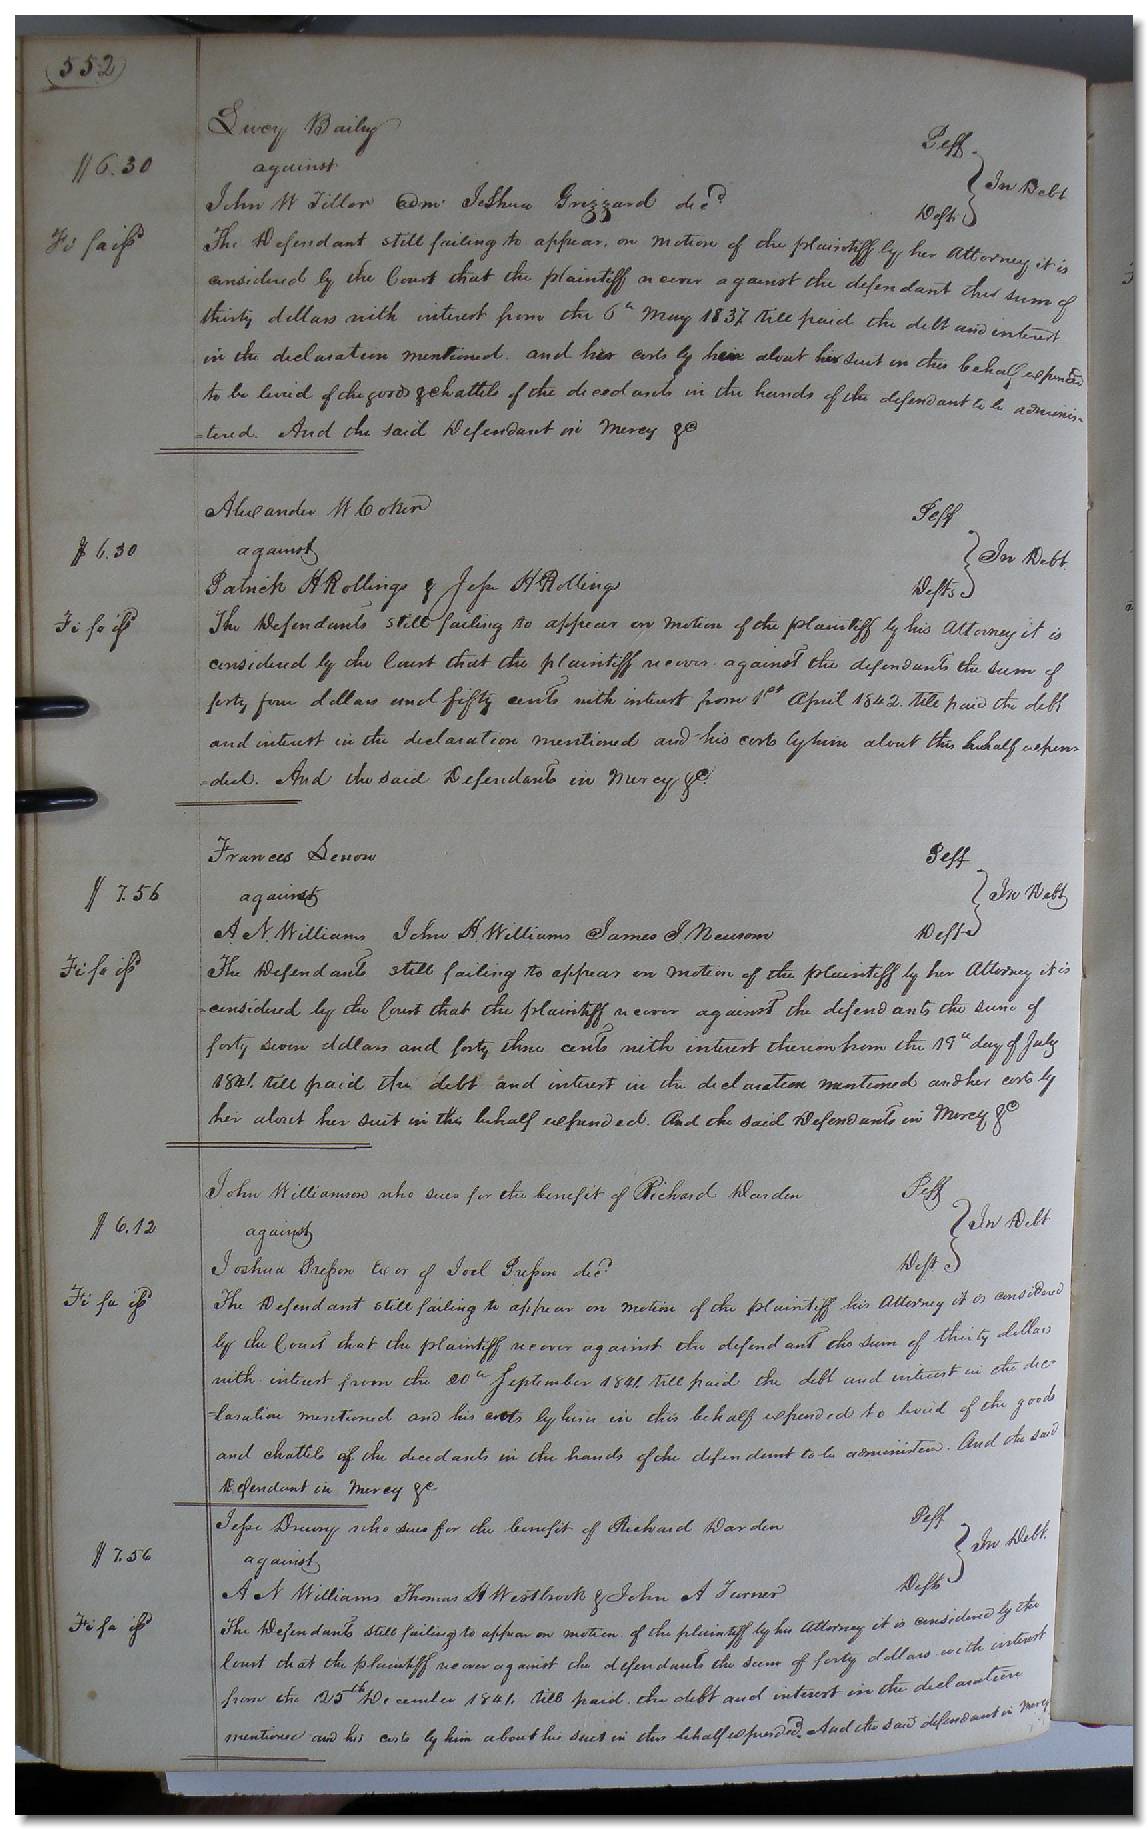 552
Lucy Baily Pltff
$6.30 against In Debt
John W Tiller adm. Joshua Grizzard decd Deft
Fi fa issd The Defendant still failing to appear, on motion of the plaintiff by her Attorney it is
considered by the Court that the plaintiff recover against the defendant the sum of
thirty dollars with interest from the 6th May 1837 till paid the debt and interest
in the declaration mentioned. and her costs by her about her suit in this behalf expended
to be levied of the goods & chattels of the decedants in the hands of the defendant to be adminis-
-tered. And the said Defendant in Mercy &c
Alexander W Coker Pltff
$6.30 against In Debt.
Patrick H Rollings & Jesse H Rollings Defts
Fi fa issd The Defendants still failing to appear on motion of the plaintiff by his Attorney it is
considered by the Court that the plaintiff recover against the defendants the sum of
forty four dollars and fifty cents with interest from 1st April 1842. till paid the debt
and interest in the declaration mentioned and his costs by him about this behalf expen-
-ded. And the said Defendants in Mercy &c.
Frances Pltff
$7.56 against In Debt
A. N. Williams John H Williams James J. Newsom Defts
Fi fa issd The Defendants still failing to appear on motion of the plaintiff by her Attorney it is
considered by the Court that the plaintiff recover against the defendants the sum of
forty seven dollars and forty three cents with interest thereon from the 19th day of July
1841. till paid the debt and interest in the declaration mentioned and her costs by
her about her suit in this behalf expended. And the said Defendants in Mercy &c
John Williamson who sues for the benefit of Richard Darden Pltff
$6.12 against In Debt
Joshua Presson Exor of Joel Presson decd Deft
Fi fa issd The Defendant still failing to appear on motion of the plaintiff his Attorney it is considered
by the Court that the plaintiff recover against the defendant the sum of thirty dollars
with interest from the 20th September 1841. till paid the debt and interest in the dec-
-laration mentioned and his costs by him in this behalf expended to levied of the goods
and chattels of the decedants in the hands of the defendant to be administered. And the said
Defendant in Mercy &c
Jesse Drewry who sues for the benefit of Richard Darden Pltff
$7.56 against In Debt.
A N Williams Thomas H Westbrook & John A Turner Defts
Fi fa issd The Defendants still failing to appear on motion of the plaintiff by his Attorney it is considered by the
Court that the plaintiff recover against the defendants the sum of forty dollars with interest
from the 25th December 1841. till paid. the debt and interest in the declaration
mentioned and his costs by him about his suit in this behalf expended. And the said defendant in Mercy